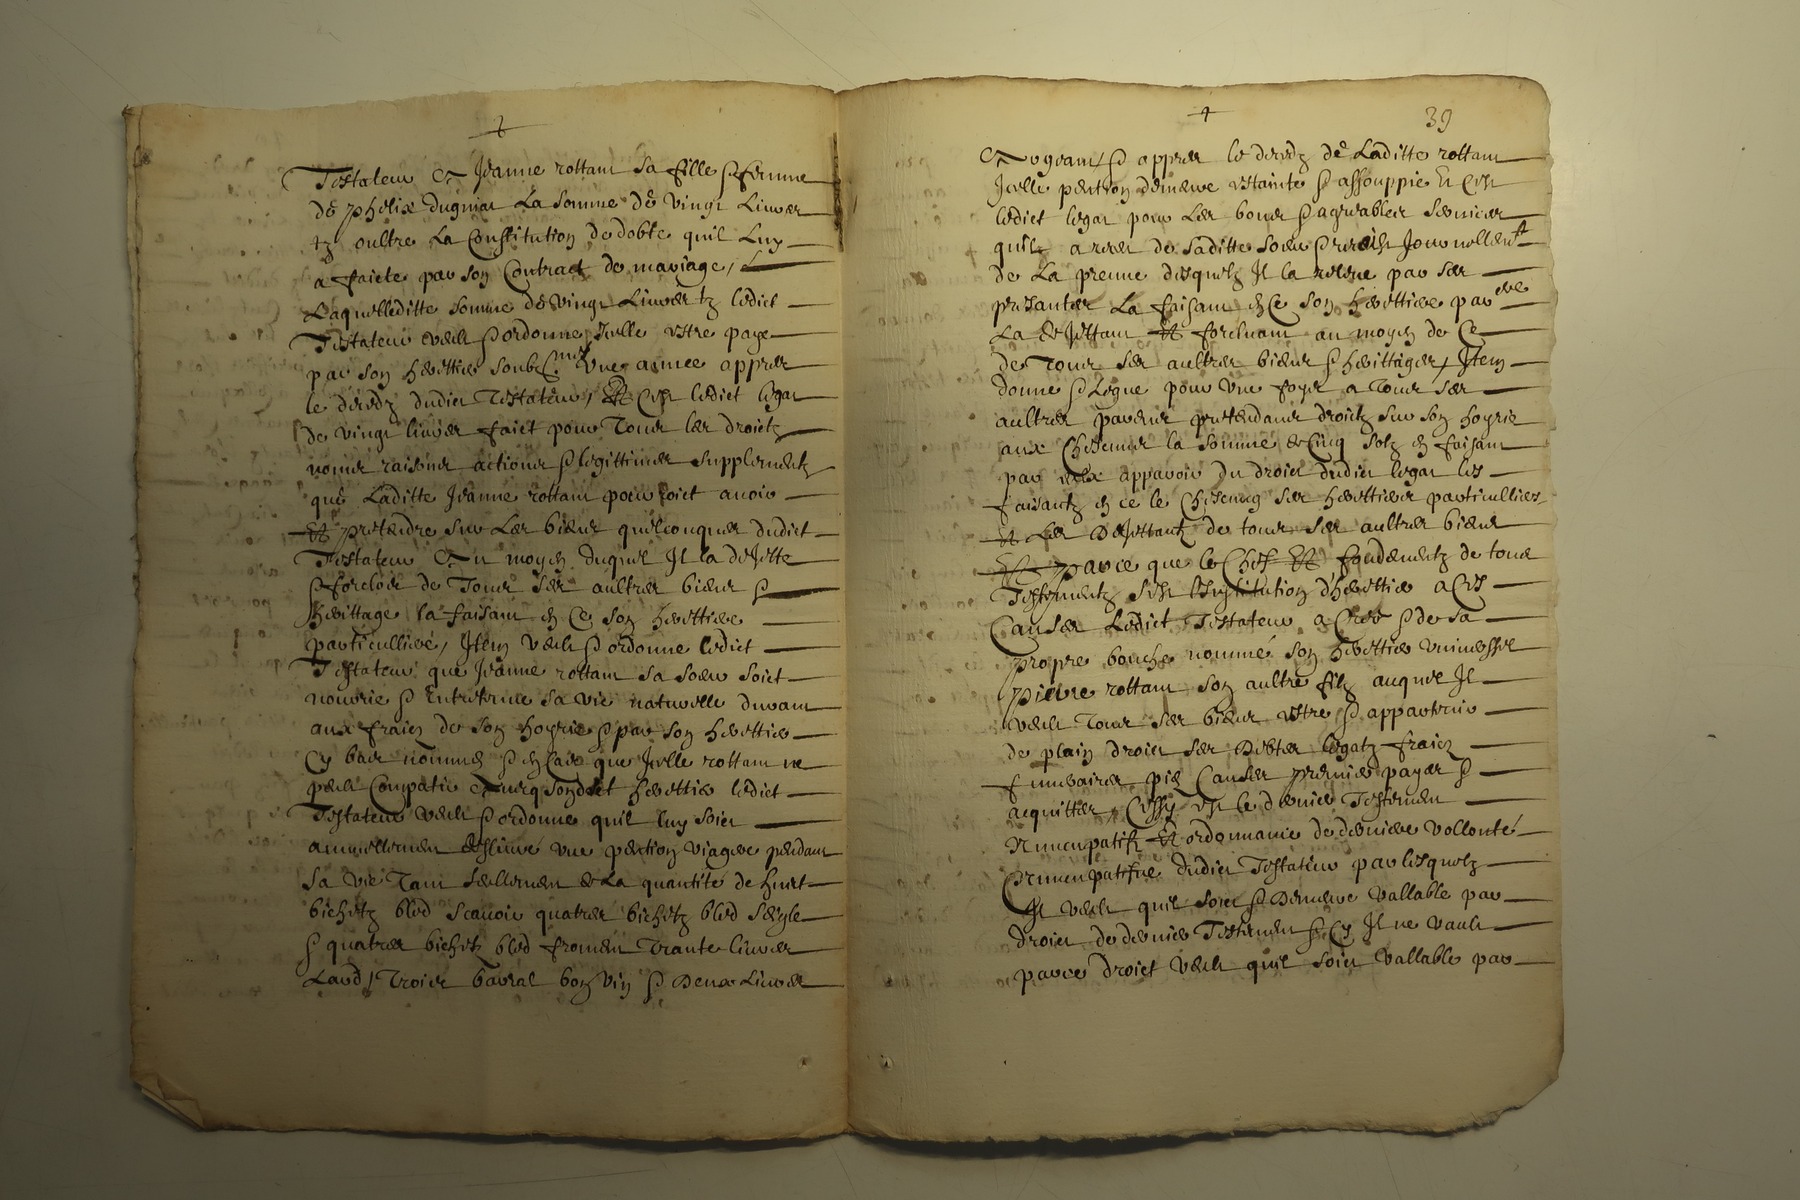 Testateur Et Jeanne rottain sa fille & femme
de phelix dugniat La somme de vingt Livres
tz oultre La Constitution de dobte quil Luy
a faicte par son Contract de mariage /
Laquelleditte somme de vingt Livres tz ledict
Testateur veult & ordonne Icelle estre paye
par son herettier soubz une annee appres
le deredz dudict Testateur / Et Cest ledict legat
de vingt livres faict pour Tous les droictz
noms raisons actions & legittimes supplementz
que Laditte Jeanne rottain pourroict avoir
Et pretendre sur Les biens quelconques dudict
Testateur Et Au moyen duquel Il la dejette
& forclost de Tous ses aultres biens &
herittage la faisant en Ce son herettiere
particulliere / Item veult & ordonne ledict
Testateur que Jeanne rottain sa soeur soict
nourrie & Entretenue sa vie naturelle durant
aux fraiz de son hoyrie & par son herettier
Cy bas nommé & en Cas que Icelle rottain ne
peult Compatir avecq sondict herettier ledict
Testateur veult & ordonne quil luy soict
annuellement deslivré une pention viagere pendant
sa vie Tant seullement de La quantité de huict
bichetz bled scavoir quatres bichetz bled seigle
& quatres bichetz bled froment Trante livres
Lard / Trois barral bon vin & Deux Livres
4
39
& appres le deredz de Laditte rottain
Icelle pention demeure estainte & assouppie Et Cest
ledict legat pour Les bons & agreables services
quil a receu de saditte soeur & reçoist Journellemt
de La preuve desquelz Il la releve par ses
presantes La faisant en Ce son herettiere parere
La dejettant Et forcluant au moyen de Ce
de Tous ses aultres biens & herittages / Item
donne & Legue pour une foys a Tous ses
aultres parens pretendant droictz sur son hoyrie
aux Chescuns la somme de Cinq solz en faisant
par eux apparoir du droict dudict legat les
faisantz en ce le Chescung ses herettiers particulliers
Et Les Dejettantz de tous ses aultres biens
Et parce que le Chef Et fondementz de tous
Testementz est l'Institution d'herettier a Ces
Causes Ledict Testateur a Creé & de sa
propre bouche nommé son herettier universsel
pierre rottain son aultre filz auquel Il
veult Tous ses biens estre & appartenir
de plain droict ses Debtes legatz fraiz
funeraires pie Causes premier payes &
acquittes / Cessy est le dernier Testement
Nuncupatif Et ordonnance de derniere vollonté
Nuncupatifve dudict Testateur par lesquelz
Il veult quil soict & Demeure vallable par
droict de dernier Testement & Cy Il ne vault
par ce droict veult quil soict vallable par